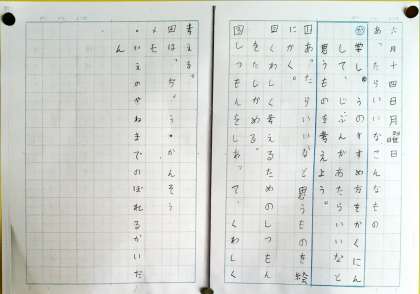 六月十四日月曜日
あったらいいなこんなもの
学しゅうのすすめ方をかくにん
して、じぶんがあたらいいなと
思うものを考えよう。
あったらいいなと思うものを絵
にかく。
くわしく考えるためのしつもん
をたしかめる。
しつもんをしあって、くわしく
考える。
メモ
・いえのやねまでのぼれるかいだ
ん